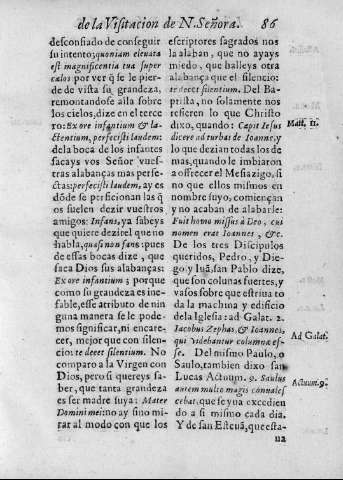 de la Visitacion de N. Señora. 86
desconfiado de conseguir
su intento; quoniam elevata
est magnificentia tua super
cœlos por ver q̃ se le pier-
de de vista su grandeza,
remontandose alla sobre
los cielos, dize en el terce
ro: Ex ore infantium & la-
ctentium, perfecisti laudem:
de la boca de los infantes
sacays vos Señor vues-
tras alabanças mas perfe-
ctas: perfecisti laudem, ay es
dõde se perficionan las q̃
os suelen dezir vuestros
amigos: Infans, ya sabeys
que quiere dezir el que no
habla, quasi non fans: pues
de essas bocas dize, que
saca Dios sus alabanças:
Ex ore infantium; porque
como su grandeza es ine-
fable, esse atributo de nin
guna manera se le pode-
mos significar, ni encare-
cer, mejor que con silen-
cio: te decet silentium. No
comparo a la Virgen con
Dios, pero si quereys sa-
ber, que tanta grandeza
es ser madre suya: Mater
Domini mei: no ay sino mi-
rar al modo con que los
escriptores sagrados nos
la alaban, que no ayays
miedo, que halleys otra
alabança que el silencio:
te decet silentium. Del Ba-
ptista, no solamente nos
refieren lo que Christo
dixo, quando: Capit Iesus
dicere ad turbas de Ioanne, y
lo que dezian todas los de
mas, quando le imbiaron
a offrecer el Mesiazgo, si
no que ellos mismos en
nombre suyo, comiençan
y no acaban de alabarle:
Fuit homo missus à Deo, cui
nomen erat Ioannes, &c.
De los tres Discipulos
queridos, Pedro, y Die-
go y Iuã, san Pablo dize,
que son colunas fuertes, y
vasos sobre que estriba to
da la machina y edificio
de la Iglesia: ad Galat. 2.
Iacobus Zephas, & Ioannes,
qui videbantur columnæ es-
se. Del mismo Paulo, o
Saulo, tambien dixo san
Lucas Actuum. 9. Saulus
autem multo magis convales
cebat, que se yua excedien
do a si mismo cada dia.
Y de san Esteuã, que esta-
ua
Matt. 11.
Ad Galat.
Actuum. 9.